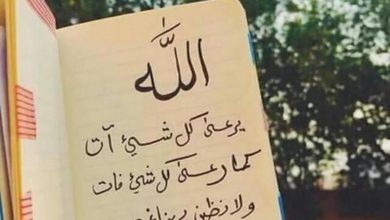 اللّٰه
يرعىٰ كل شيئ آت
كما رعىٰ كل شيئ فات
ولا تظن